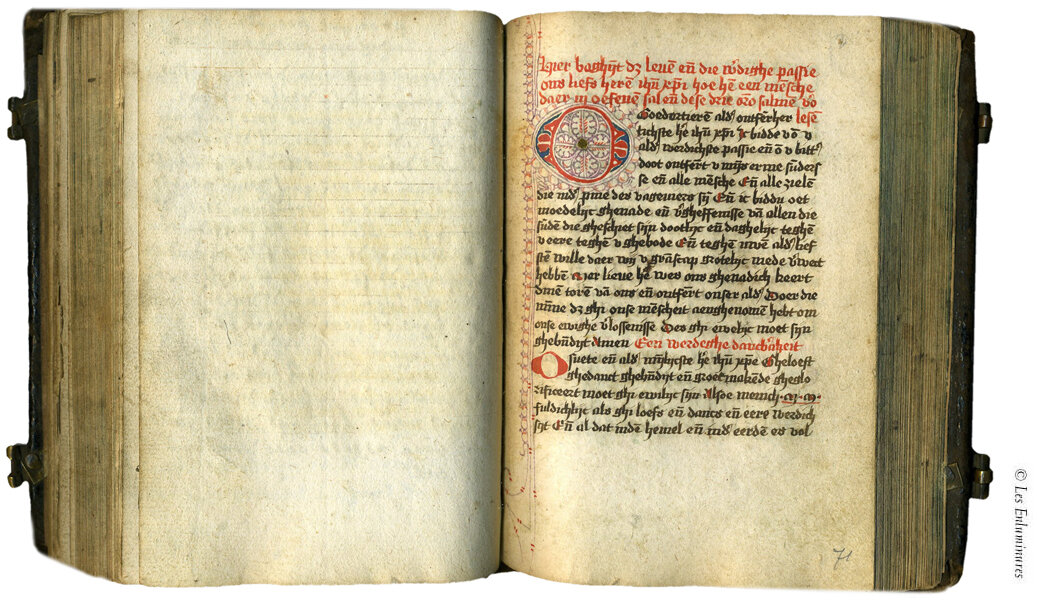 Hier beghīt dz leuē eñ die w̄dighe passie
ons liefs herē ihū xpī hoe hē een mēsche
daer in oefenē sal eñ dese drie
O Goedertierenē ald' ontfērher lesē
tichste he ihū xpī ic bidde v ō v
ald' werdichste passie eñ ō v bitt'
doot ontfērt v mijs erme sūders
se eñ alle mēsche Eñ alle zielē
die īnd' pine des vageuiers sij Eñ ic bidde v oet
moedelijc ghenade eñ v'gheffenisse vā allen die
sūdē die gheschiet sijn dootlijc eñ daghelijc teghē
v eere teghē v ghebode Eñ teghē uwē ald' lief
stē wille daer wij v grāscap grotelijc mede v'dient
hebbē Maer lieue he wes ons ghenadich keert
dinē torē vā ons eñ ontfērt onser ald' Doer die
mīne dz ghi onse mēscheit aenghenomē hebt om
onse ewighe v'lossenisse Des ghi ewelijc moet sijn
ghebndijt Amen Een werdeghe dancb'aheit
O suete eñ ald' mīlijcste he ihū xpē Gheloeft
ghedanct ghebndijt eñ groet makēde gheglo
rificeert moet ghi ewilijc sijn Alsoe menich
fuldichlijc als ghi loefs eñ dancs eñ eere werdich
sijt Eñ al dat indē hemel eñ īnd' eerdē es vol
71
© Les Enluminures